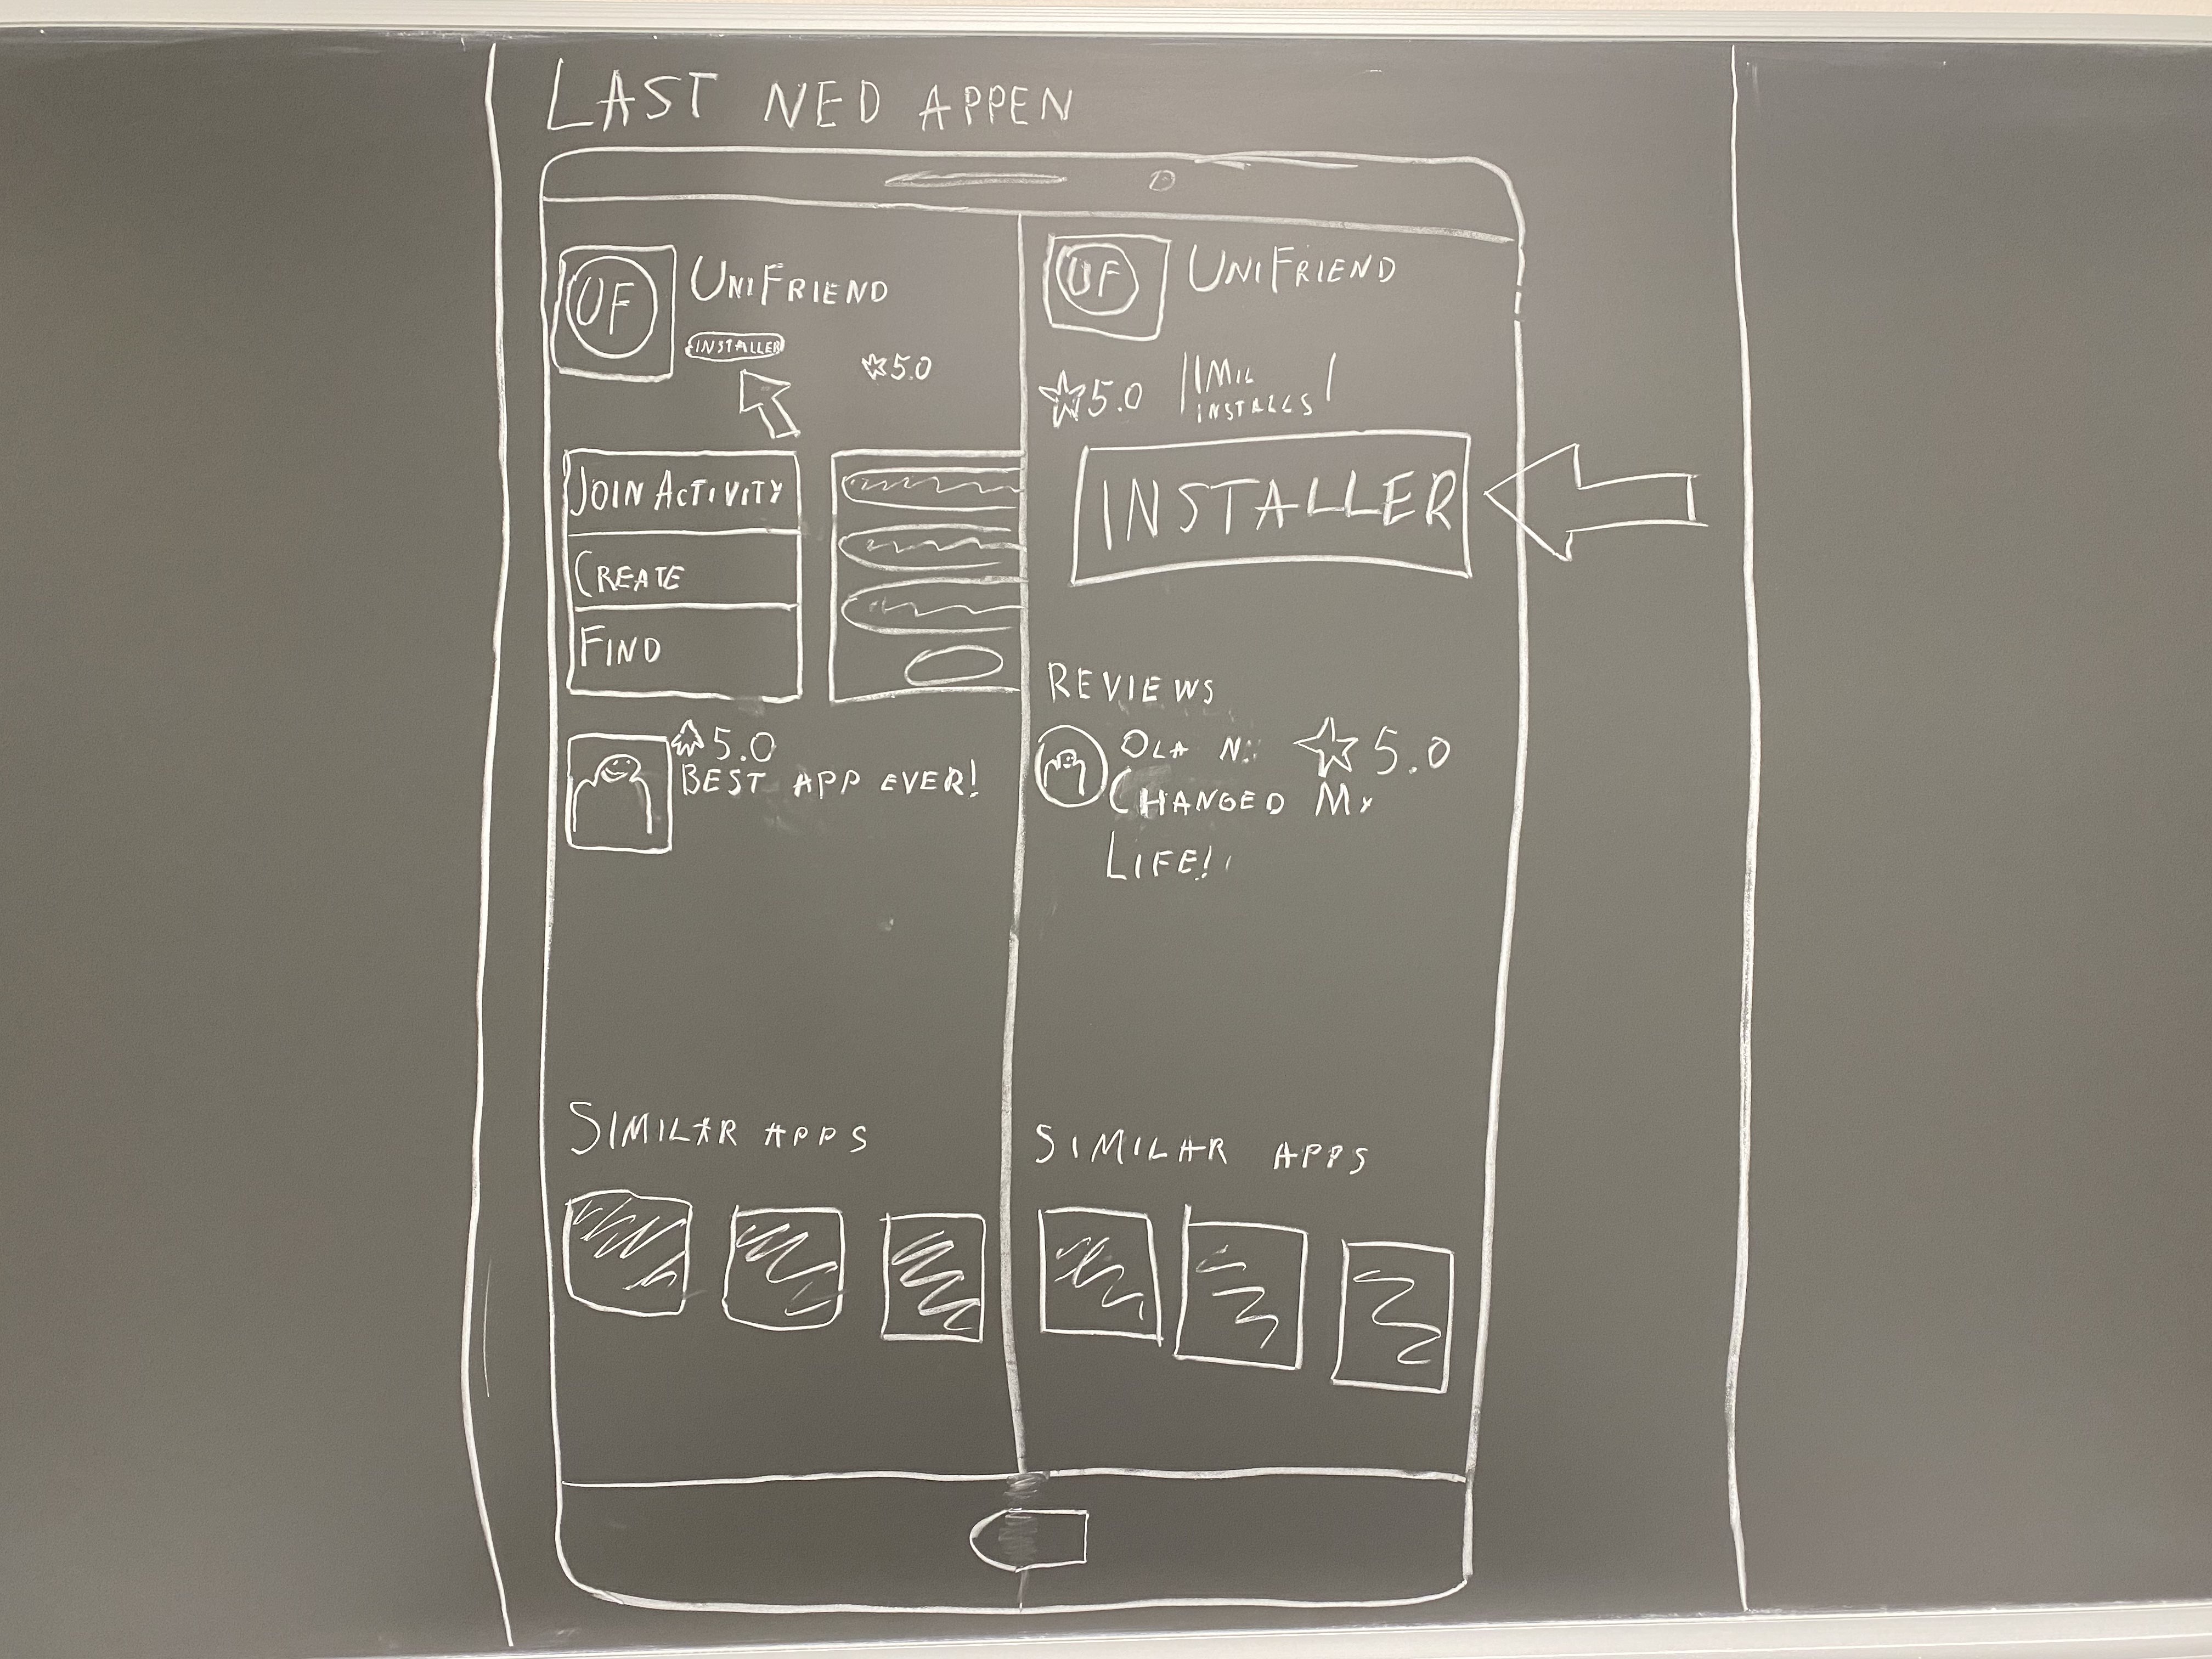 LAST NED APPEN
UF
UNIFRIEND
INSTALLER
5.0
JOIN ACTIVITY
CREATE
FIND
5.0
BEST APP EVER!
SIMILAR APPS
UF
UNIFRIEND
5.0
1 MIL
INSTALLS
INSTALLER
REVIEWS
OLA N. 5.0
CHANGED MY
LIFE!!
SIMILAR APPS